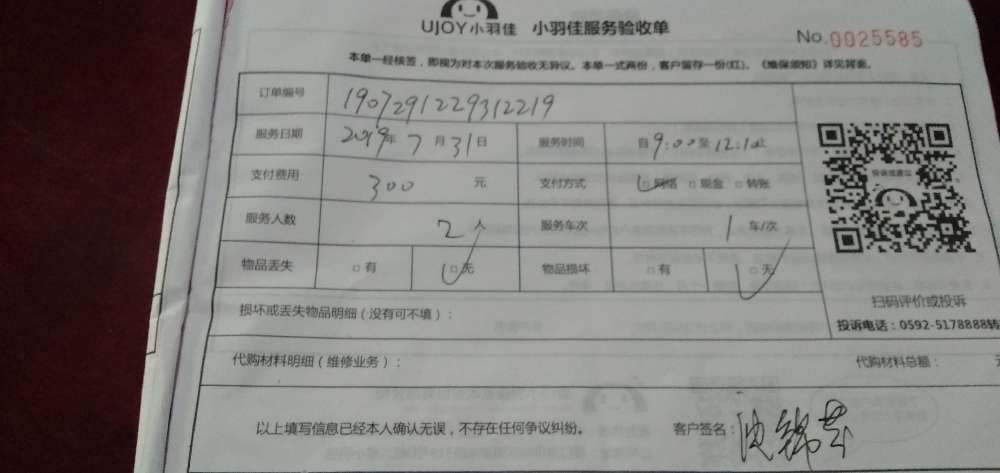 UJOY小羽佳 小羽佳服务验收单 No.0025585
本单一经核签，即视为对本次服务验收无异议。本单一式两份，客户留存一份(红)。《维保须知》详见背面。
订单编号 1907291229312219
服务日期 2019年7月31日 服务时间 自9:00至12:10止
支付费用 300元 支付方式 □网络 □现金 □转账
服务人数 2人 服务车次 1车/次
物品丢失 □有 □无 物品损坏 □有 □无
扫码评价或投诉
损坏或丢失物品明细（没有可不填）：
投诉电话：0592-5178888转
代购材料明细（维修业务）： 代购材料总额：
以上填写信息已经本人确认无误，不存在任何争议纠纷。 客户签名：沈锦芸